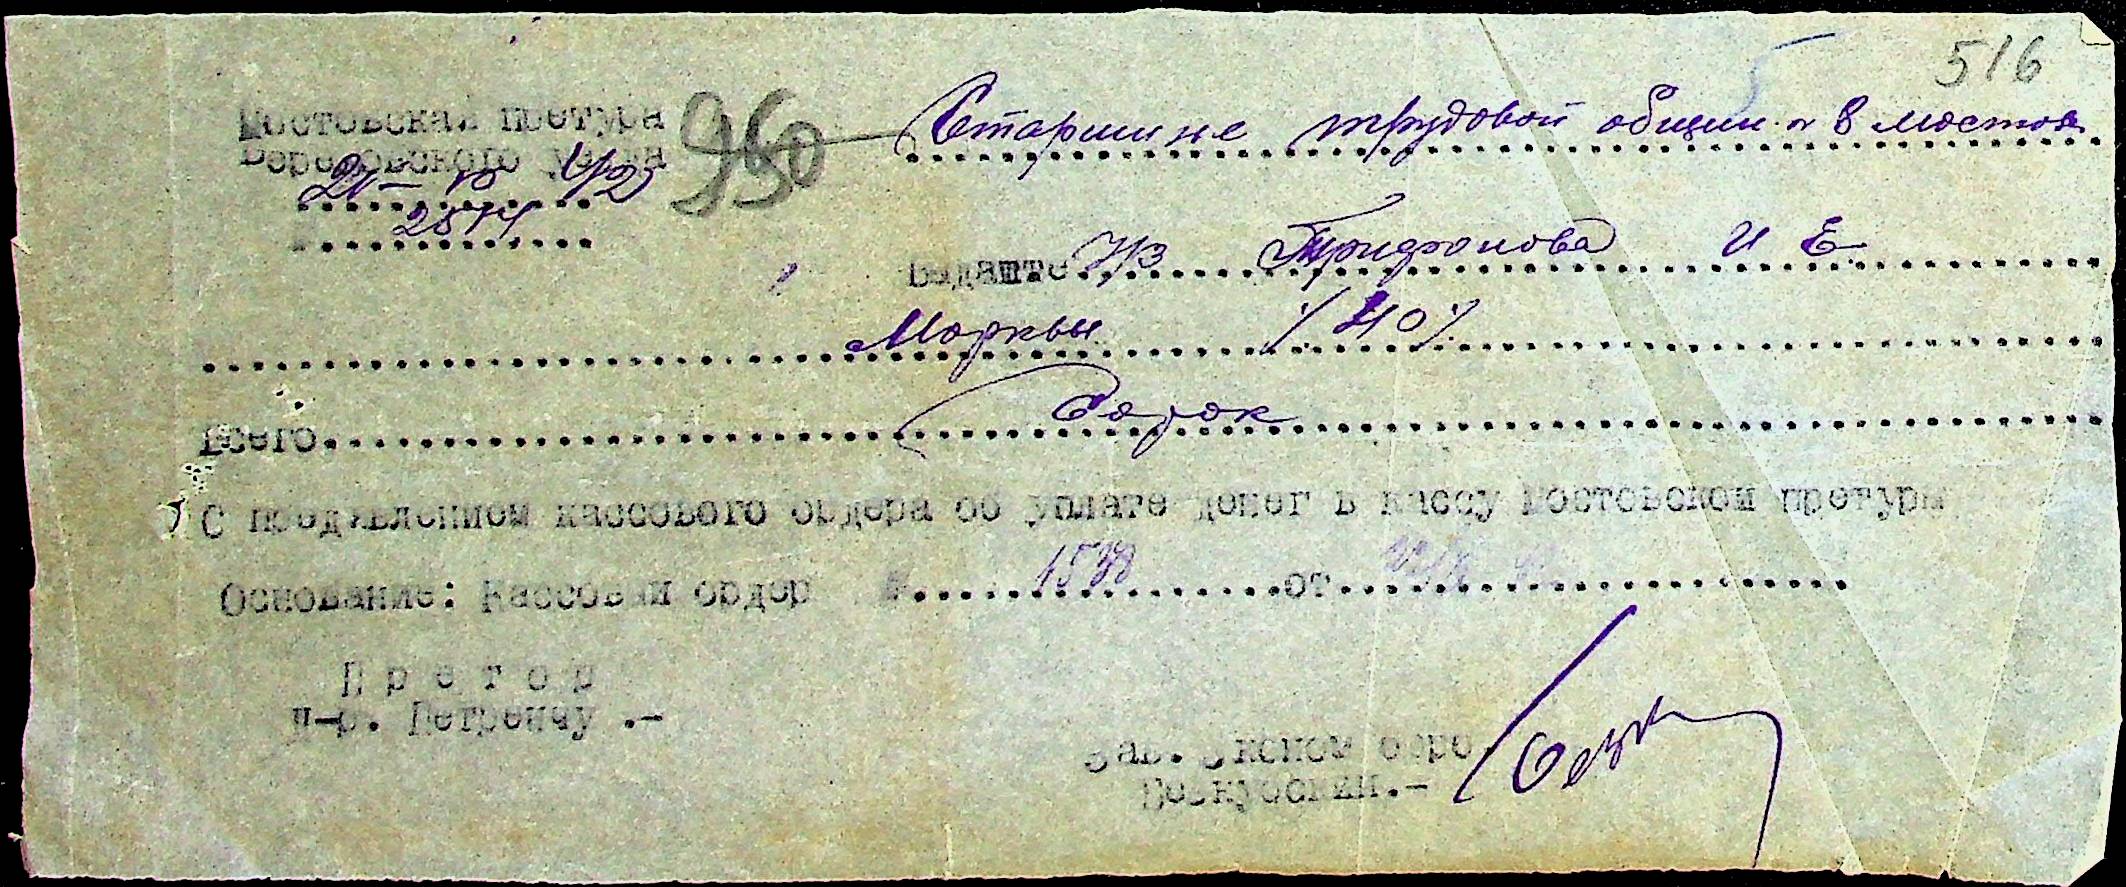 516
Мостовская претура
Березовского уезда
950
Старшине трудовой общины № 8 Мостов
2571
Выдайте Ч/З Трифонова И Е
Морквы /40/
Всего Сорок
С предявлением кассового ордера об уплате денег в кассу Мостовской претуры
Основание: Кассовый ордер № 1538 от
Претор
п-р. Петренчу .-
Зав. Эконом бюро